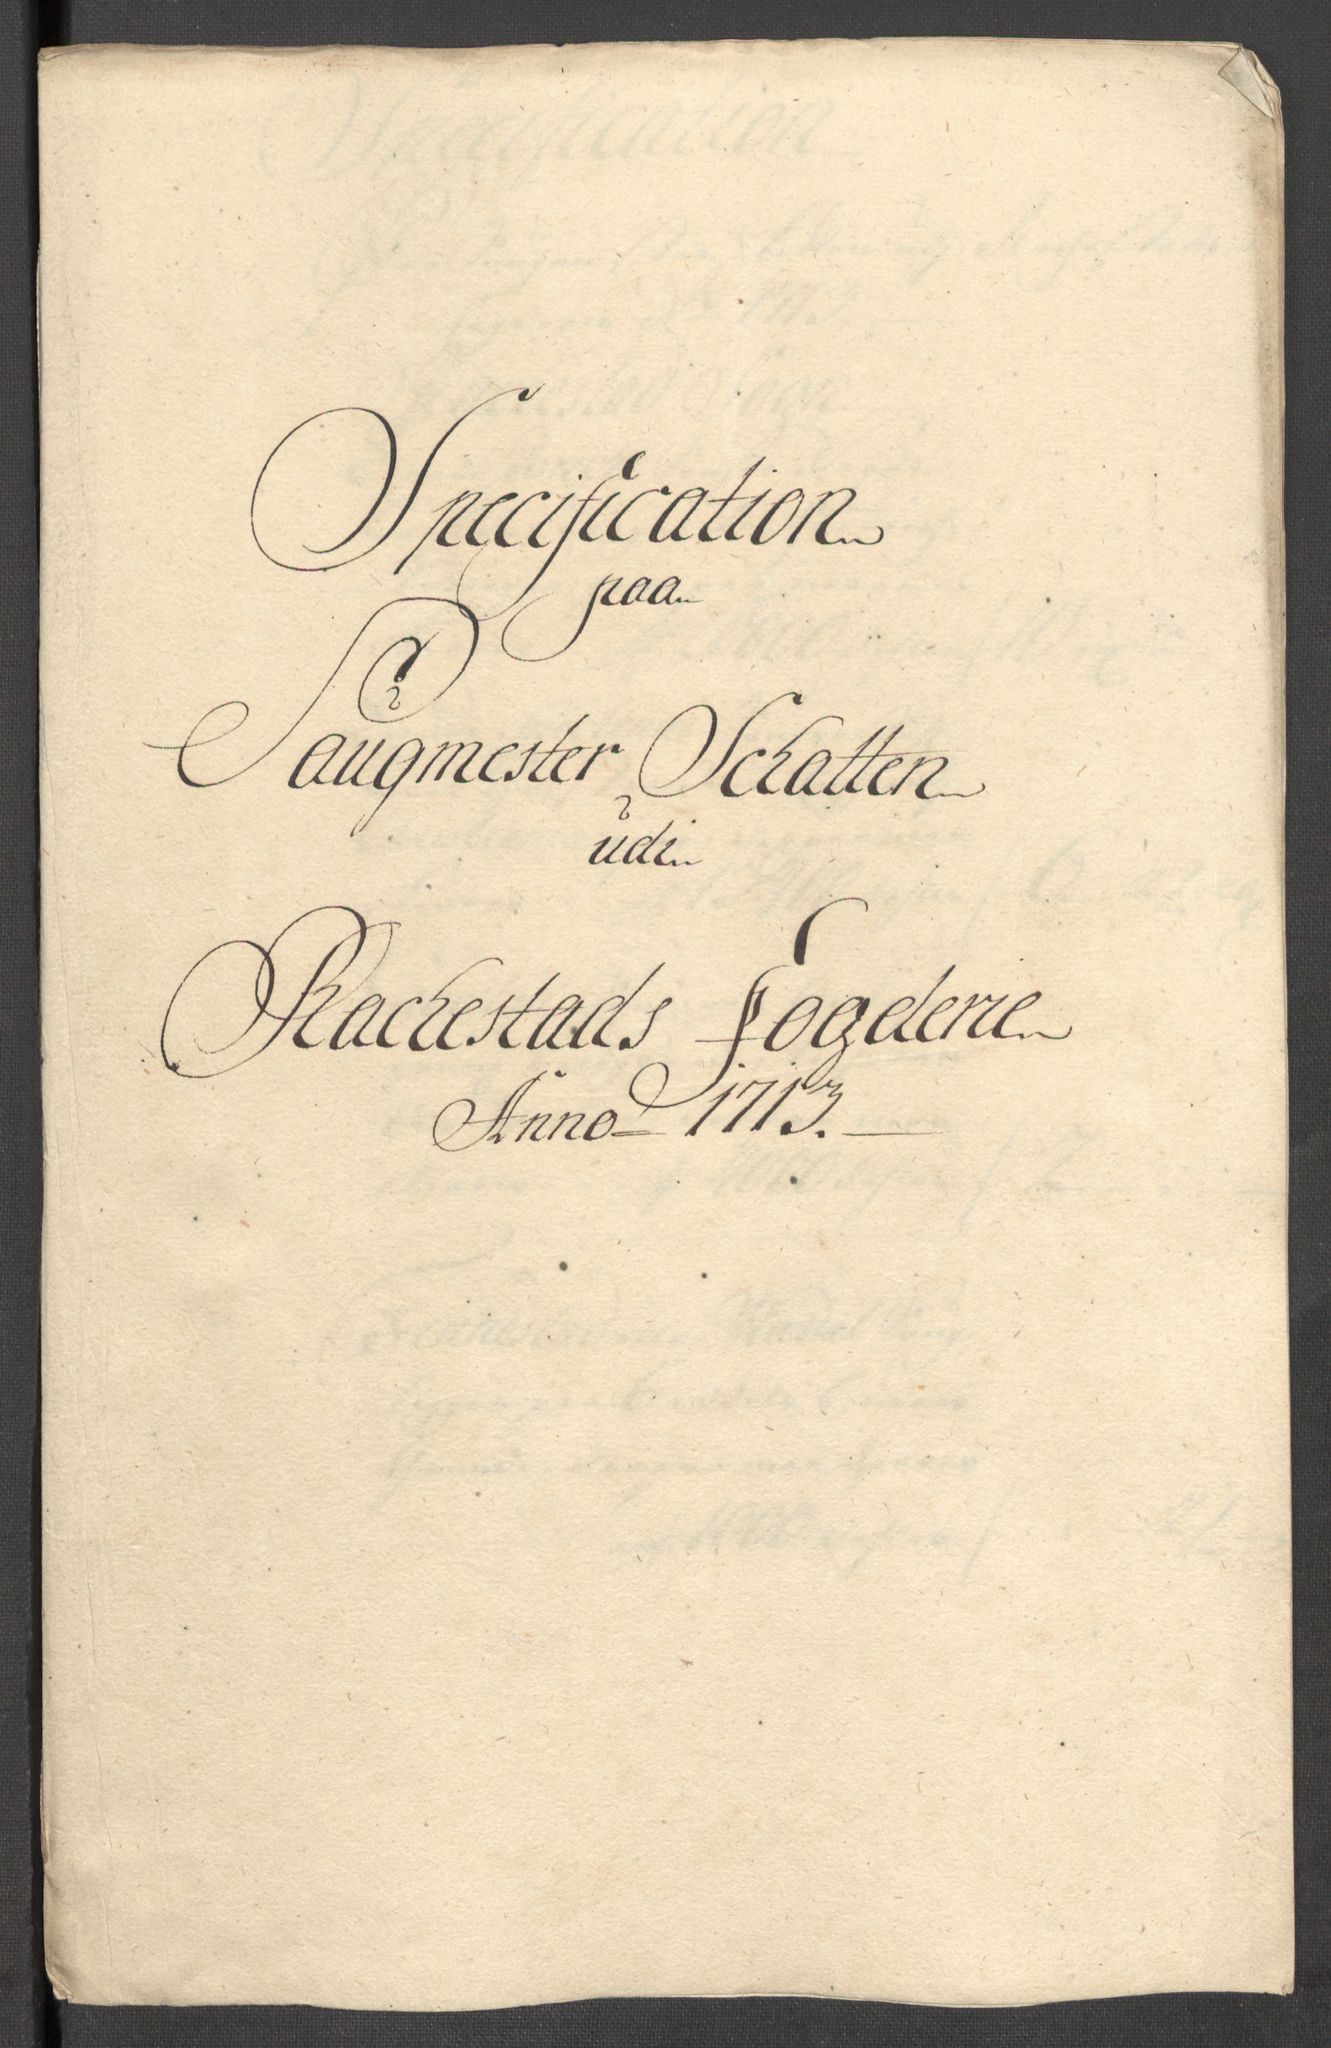 Specification
paa
Saugmester Schatten
udi
Rachestads Fogderie
Anno 1713.